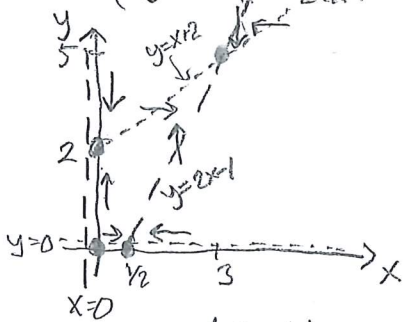 y
5
y=x+2
2
y=2x-1
y=0
1/2
3
x
x=0